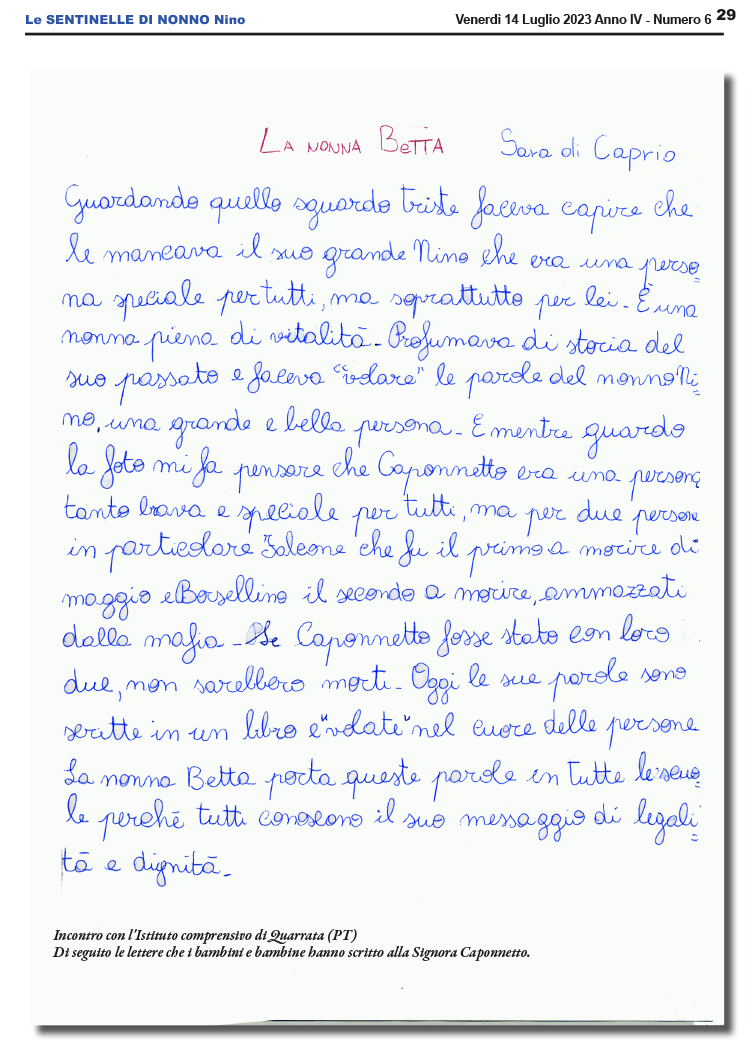 Le SENTINELLE DI NONNO Nino
Venerdì 14 Luglio 2023 Anno IV - Numero 6 29
LA NONNA BeTTA Sara di Caprio
Guardando quello sguardo triste faceva capire che
le mancava il suo grande Nino che era una perso=
na speciale per tutti, ma soprattutto per lei. È una
nonna piena di vitalità. Profumava di storia del
suo passato e faceva "volare" le parole del nonno Ni=
no, una grande e bella persona. E mentre guardo
la foto mi fa pensare che Caponnetto era una persona
tanto brava e speciale per tutti, ma per due persone
in particolare Falcone che fu il primo a morire di
maggio e Borsellino il secondo a morire, ammazzati
dalla mafia. Se Caponnetto fosse stato con loro
due, non sarebbero morti. Oggi le sue parole sono
scritte in un libro e "volate" nel cuore delle persone
La nonna Betta porta queste parole in tutte le scuo=
le perché tutti conoscono il suo messaggio di legali=
tà e dignità.
Incontro con l'Istituto comprensivo di Quarrata (PT)
Di seguito le lettere che i bambini e bambine hanno scritto alla Signora Caponnetto.